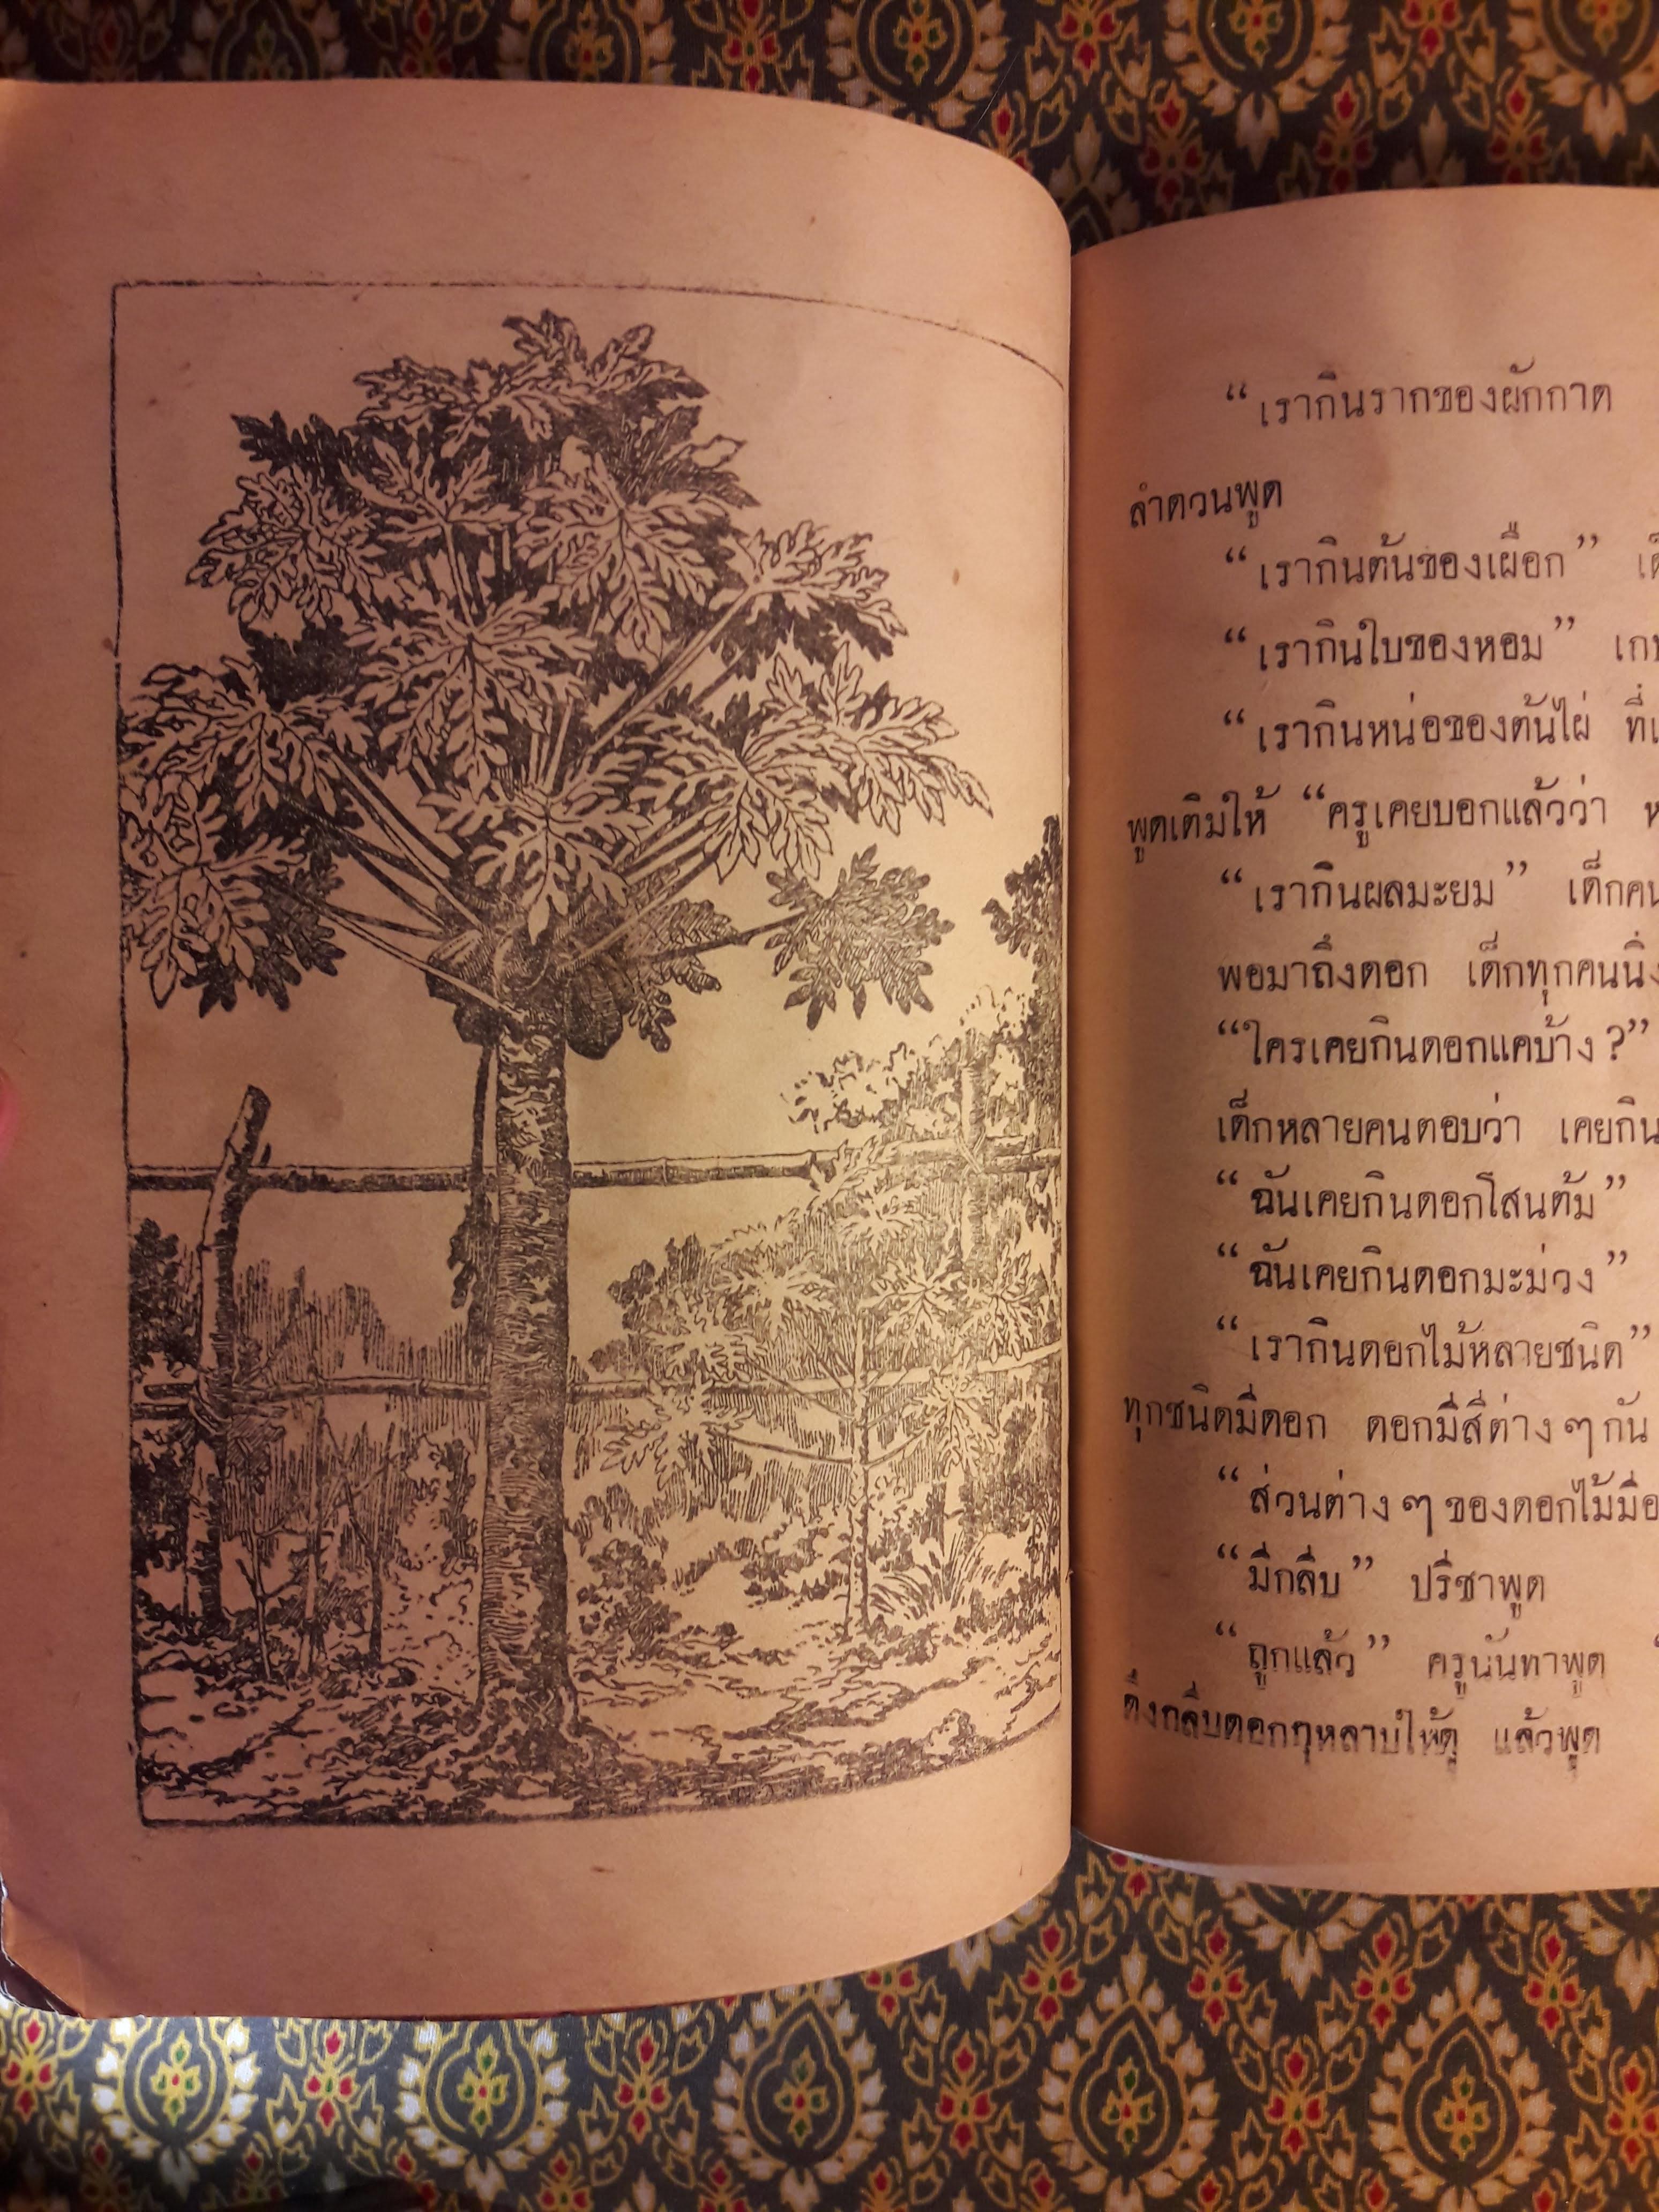 “เรากินรากของผักกาด
ลำดวนพูด
“เรากินต้นของเผือก”
“เรากินใบของหอม”
“เรากินหน่อของต้นไผ่
พูดเติมให้ “ครูเคยบอกแล้วว่า
“เรากินผลมะยม” เด็กคน
พอมาถึงดอก เด็กทุกคนนิ่ง
“ใครเคยกินดอกแคบ้าง?”
เด็กหลายคนตอบว่า เคยกิน
“ฉันเคยกินดอกโสนต้ม”
“ฉันเคยกินดอกมะม่วง”
“เรากินดอกไม้หลายชนิด”
ทุกชนิดมีดอก ดอกมีสีต่าง ๆ กัน
“ส่วนต่าง ๆ ของดอกไม้มี
“มีกลีบ” ปรีชาพูด
“ถูกแล้ว” ครูนันทาพูด
ดึงกลีบดอกกุหลาบให้ดู แล้วพูด